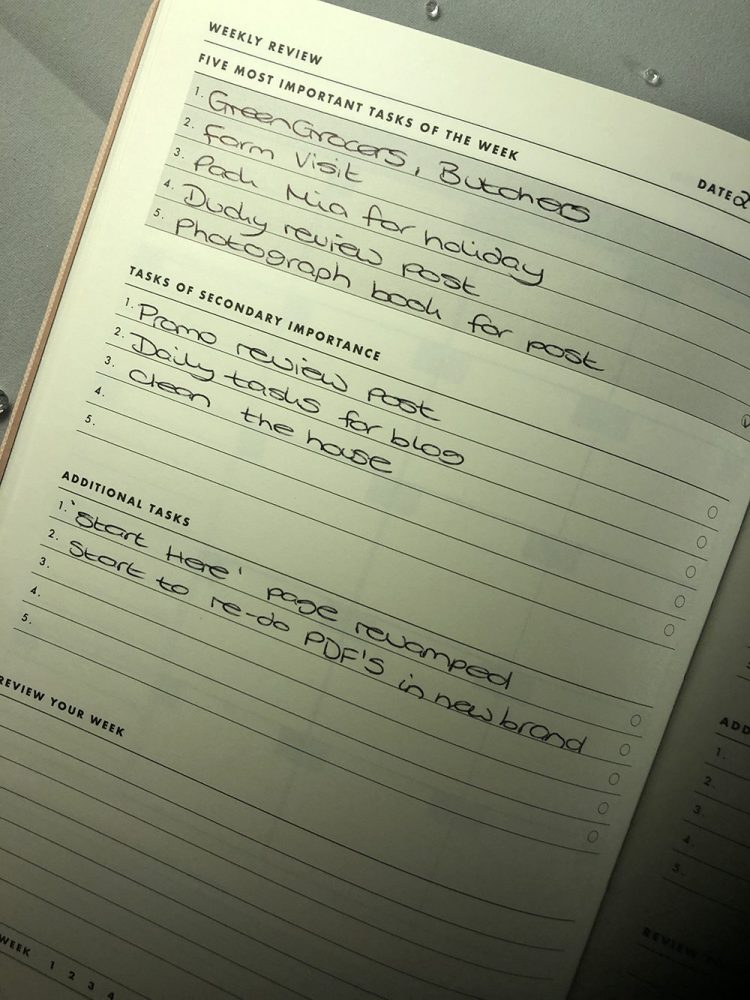 WEEKLY REVIEW
DATE 2
FIVE MOST IMPORTANT TASKS OF THE WEEK
1. GreenGrocers, Butchers
2. Farm Visit
3. Pack Mia for holiday
4. Ducky review post
5. Photograph book for post
TASKS OF SECONDARY IMPORTANCE
1. Promo review post
2. Daily tasks for blog
3. clean the house
4.
5.
ADDITIONAL TASKS
1. 'Start Here' page revamped
2. Start to re-do PDF'S in new brand
3.
4.
5.
REVIEW YOUR WEEK
WEEK 1 2 3 4
ADD
1.
2.
3.
4.
5.
REVIEW